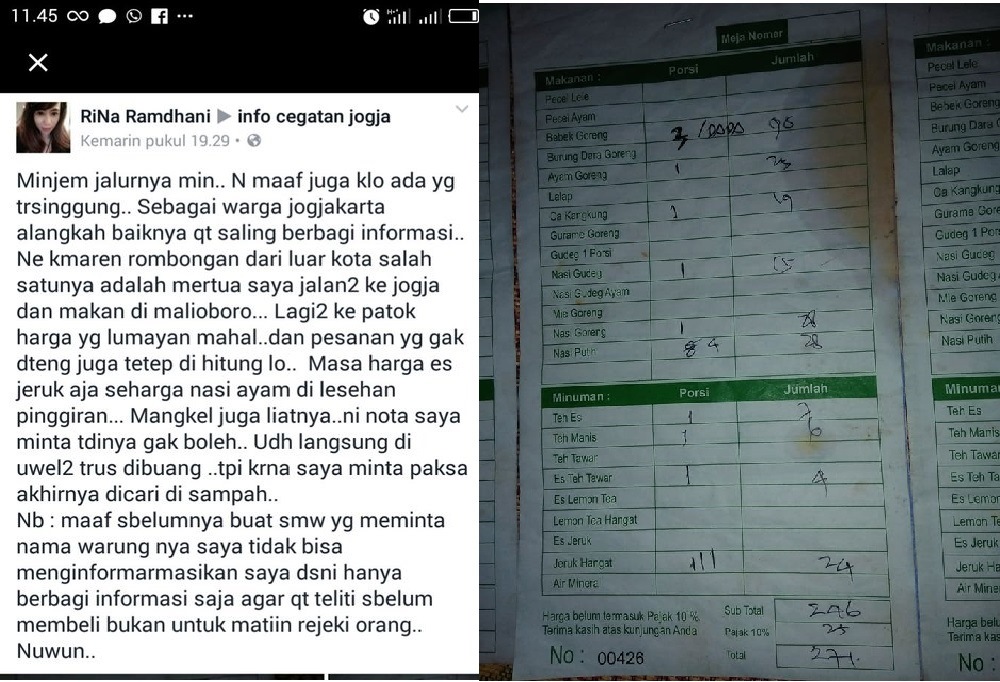 11.45
RiNa Ramdhani ▶ info cegatan jogja
Kemarin pukul 19.29
Minjem jalurnya min.. N maaf juga klo ada yg
trsinggung.. Sebagai warga jogjakarta
alangkah baiknya qt saling berbagi informasi..
Ne kmaren rombongan dari luar kota salah
satunya adalah mertua saya jalan2 ke jogja
dan makan di malioboro... Lagi2 ke patok
harga yg lumayan mahal..dan pesanan yg gak
dteng juga tetep di hitung lo.. Masa harga es
jeruk aja seharga nasi ayam di lesehan
pinggiran... Mangkel juga liatnya..ni nota saya
minta tdinya gak boleh.. Udh langsung di
uwel2 trus dibuang ..tpi krna saya minta paksa
akhirnya dicari di sampah..
Nb : maaf sbelumnya buat smw yg meminta
nama warung nya saya tidak bisa
menginformarmasikan saya dsni hanya
berbagi informasi saja agar qt teliti sbelum
membeli bukan untuk matiin rejeki orang..
Nuwun..
Meja Nomor
Makanan : Porsi Jumlah
Pecel Lele
Pecel Ayam
Bebek Goreng
Burung Dara Goreng
Ayam Goreng 1
Lalap
Ca Kangkung 1
Gurame Goreng
Gudeg 1 Porsi
Nasi Gudeg 1 15
Nasi Gudeg Ayam
Mie Goreng
Nasi Goreng 1
Nasi Putih
Minuman : Porsi Jumlah
Teh Es 1 7
Teh Manis 1 6
Teh Tawar
Es Teh Tawar 1 4
Es Lemon Tea
Lemon Tea Hangat
Es Jeruk
Jeruk Hangat 111 24
Air Minera
Harga belum termasuk Pajak 10 % Sub Total 246
Terima kasih atas kunjungan Anda Pajak 10% 25
No : 00426 Total 271
Makanan :
Pecel Lele
Pecel Ayam
Bebek Goreng
Burung Dara
Ayam Goreng
Lalap
Ca Kangkung
Gurame
Gudeg 1
Nasi Gudeg
Nasi Gudeg
Mie Goreng
Nasi Goreng
Nasi Putih
Minuma
Teh Es
Teh Manis
Teh Tawar
Es Teh
Es Lemon
Lemon
Es Jeruk
Jeruk
Air Mine
Harga
Terima
No :